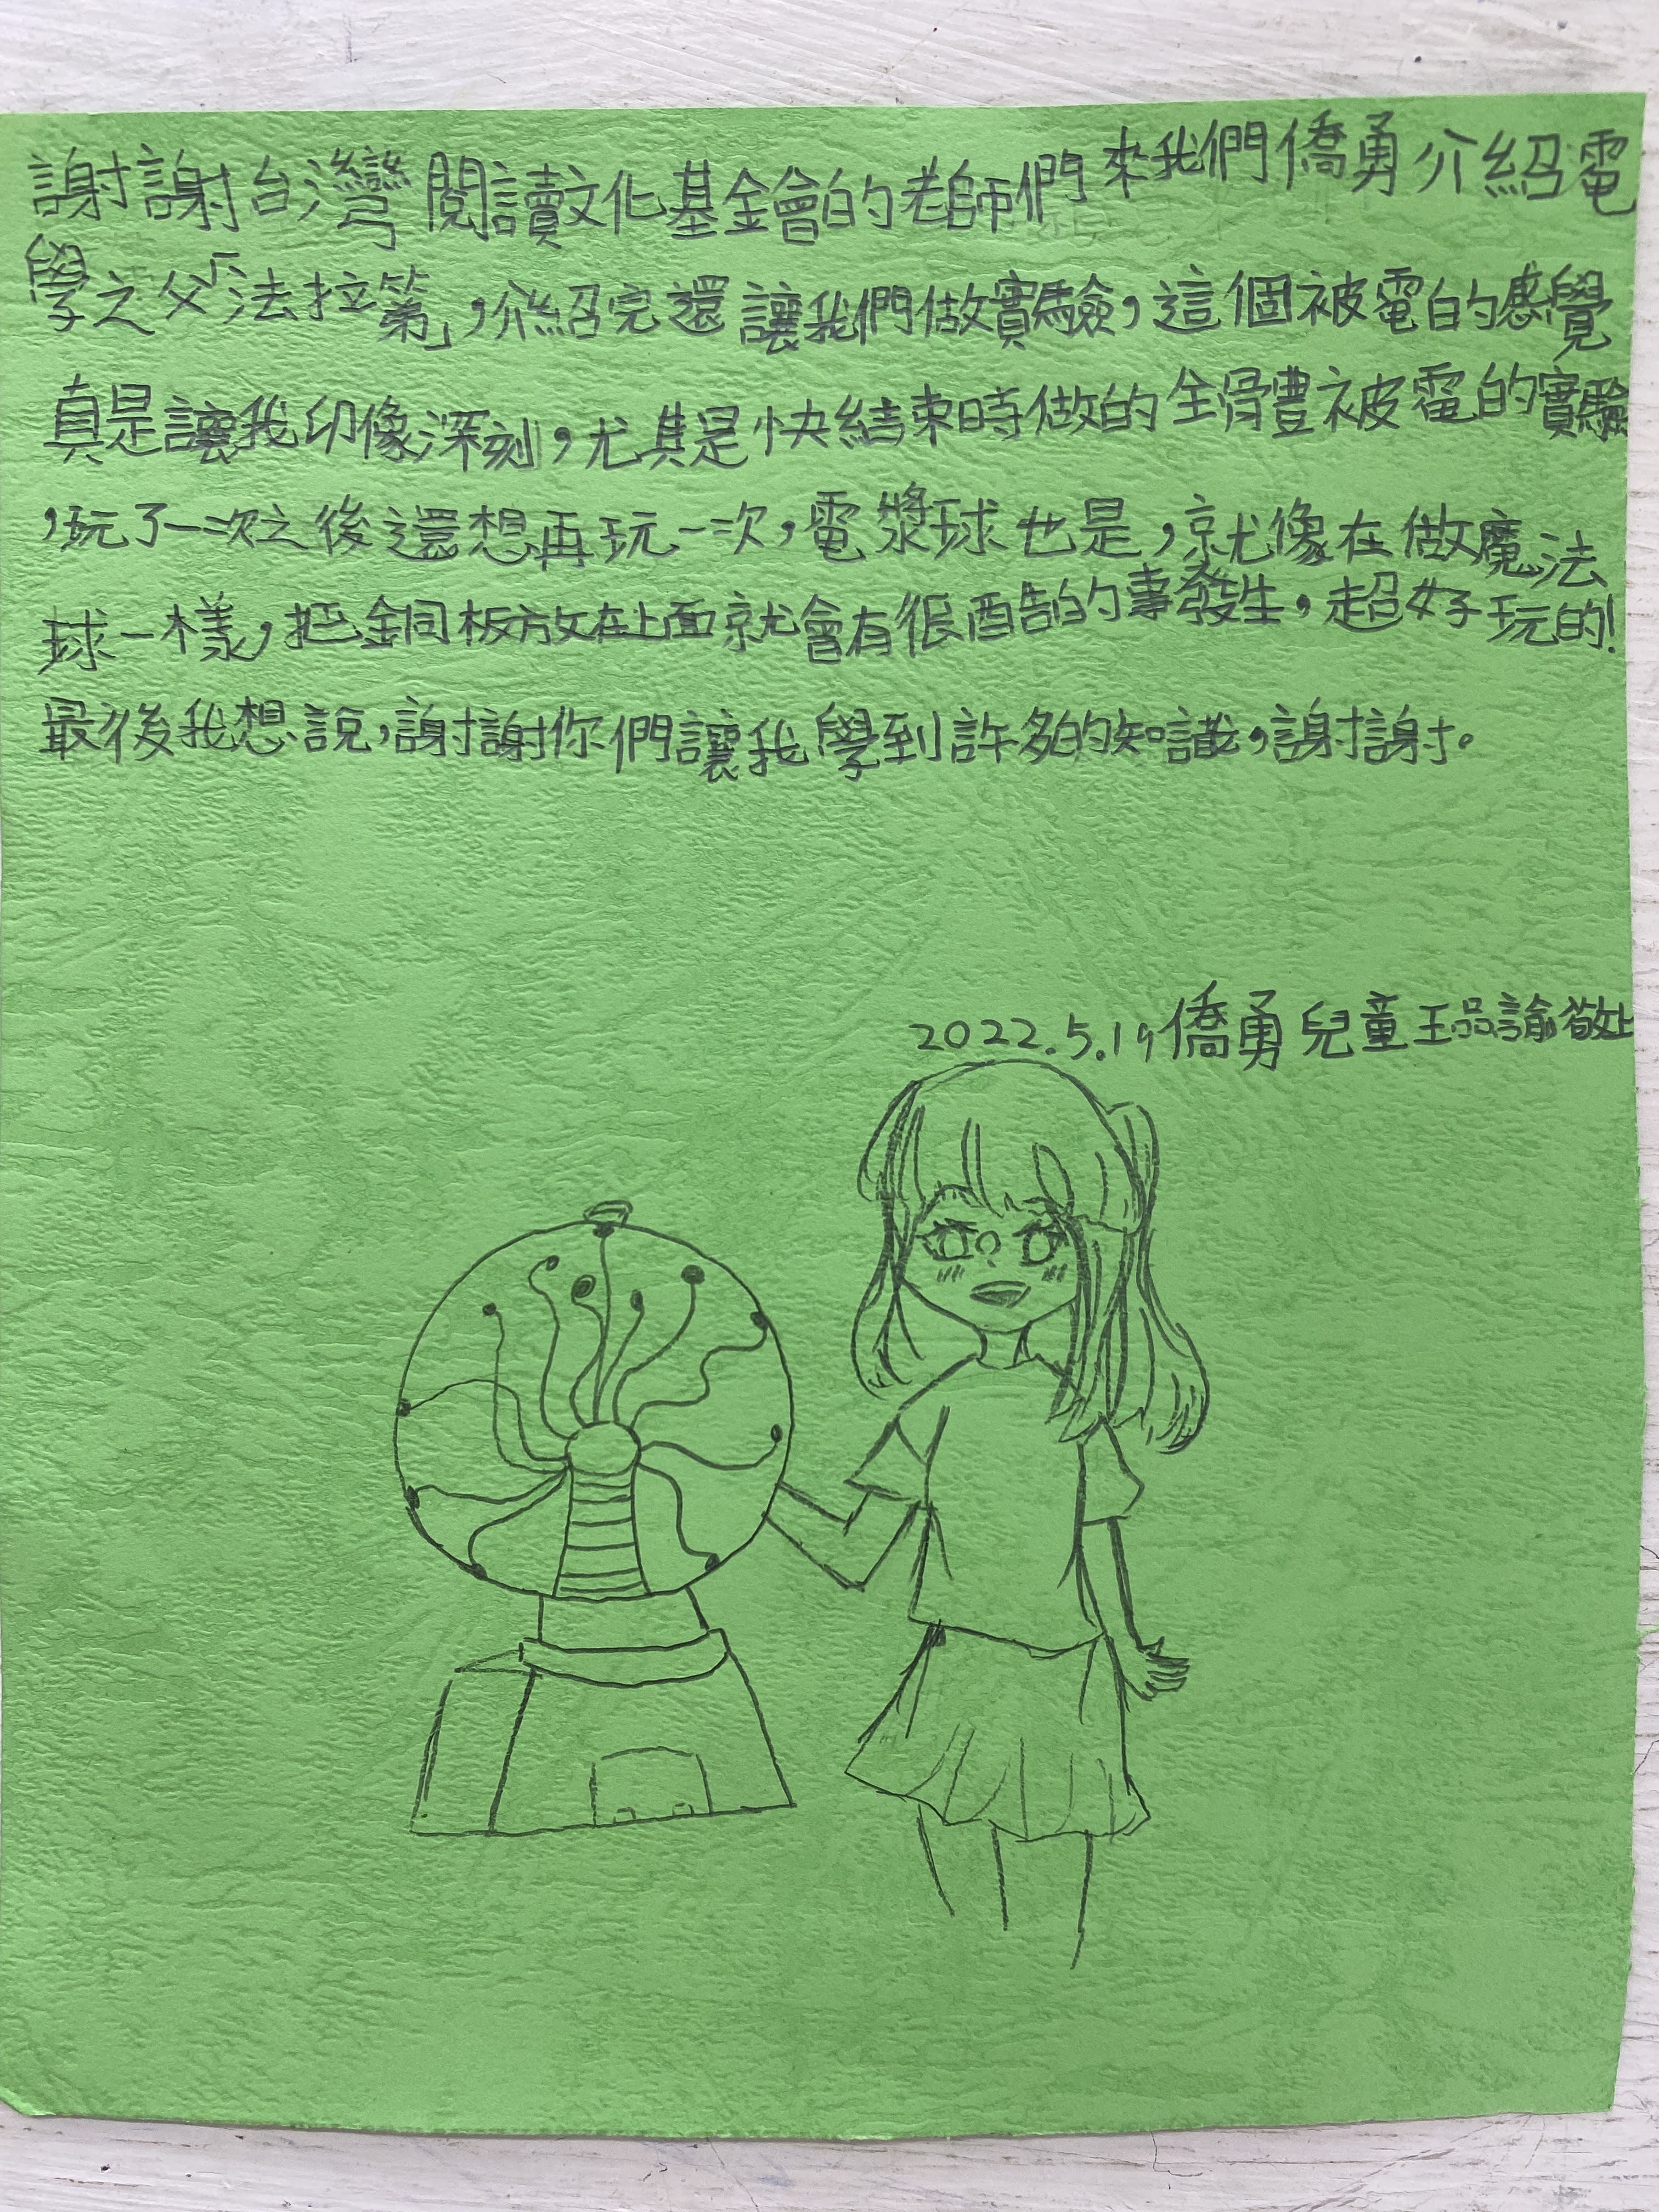 謝謝台灣閱讀文化基金會的老師們來我們僑勇介紹電
學之父「法拉第」,介紹完還讓我們做實驗,這個被電的感覺
真是讓我印像深刻,尤其是快結束時做的全骨豊被電的實驗
,玩了一次之後還想再玩一次,電漿球也是,就像在做魔法
球一樣,把銅板放在上面就會有很酷的事發生,超好玩的!
最後我想說,謝謝你們讓我學到許多的知識,謝謝。
2022.5.19僑勇兒童王品諭敬上